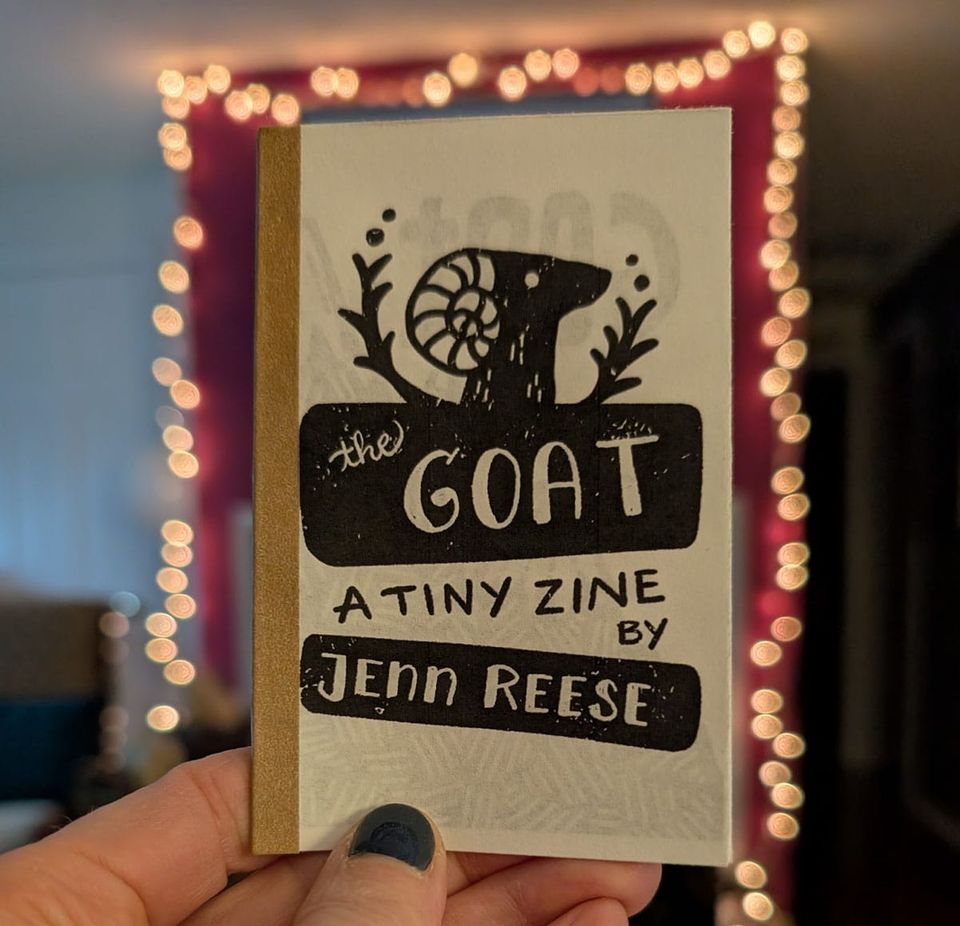 the
GOAT
A TINY ZINE
BY
JEnn REESE